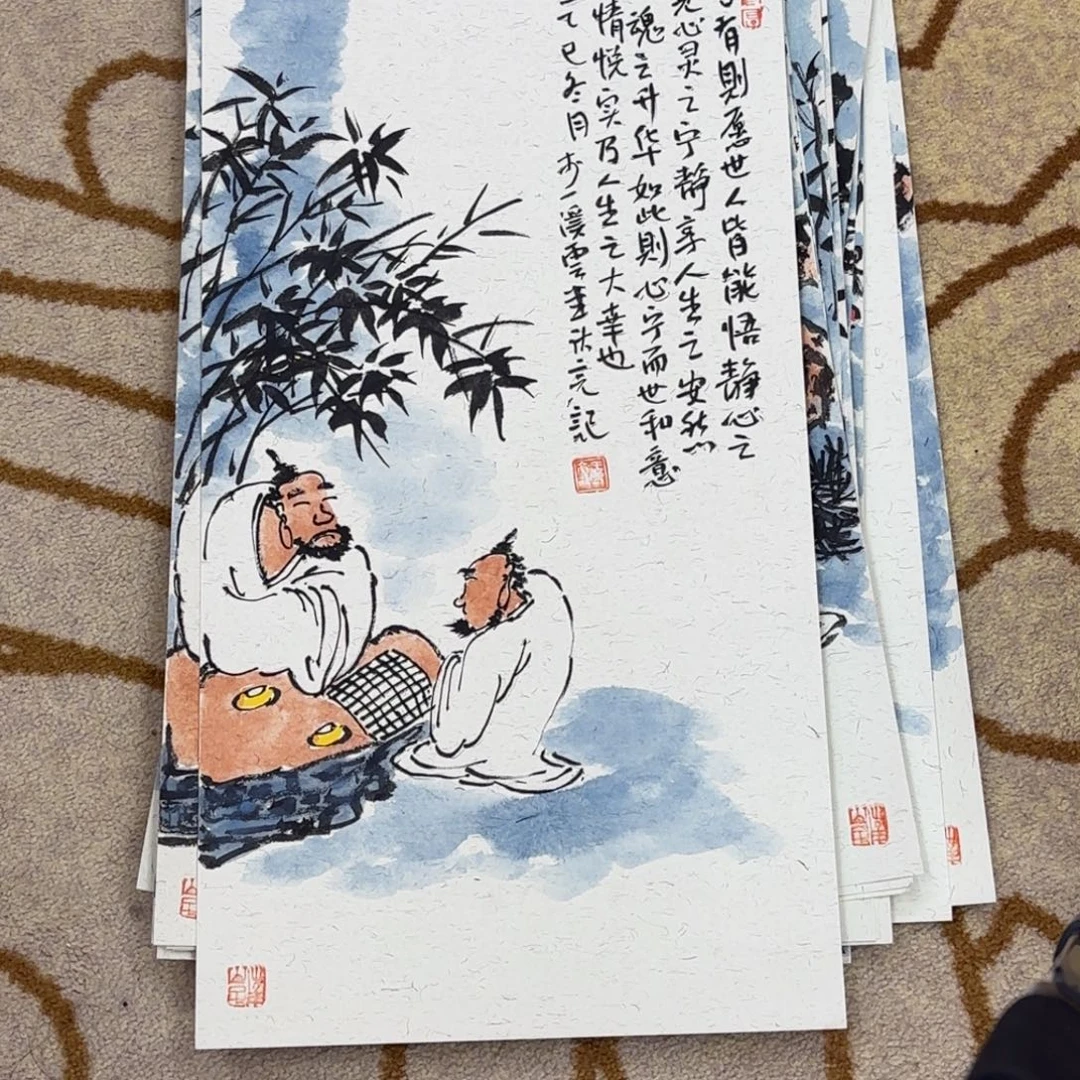 有則愿世人皆能悟静心之
心灵之宁静享人生之安然
魂之升华如此則心宁而世和意
情悦实乃人生之大幸也
乙巳冬月于一溪雲畫法亮記